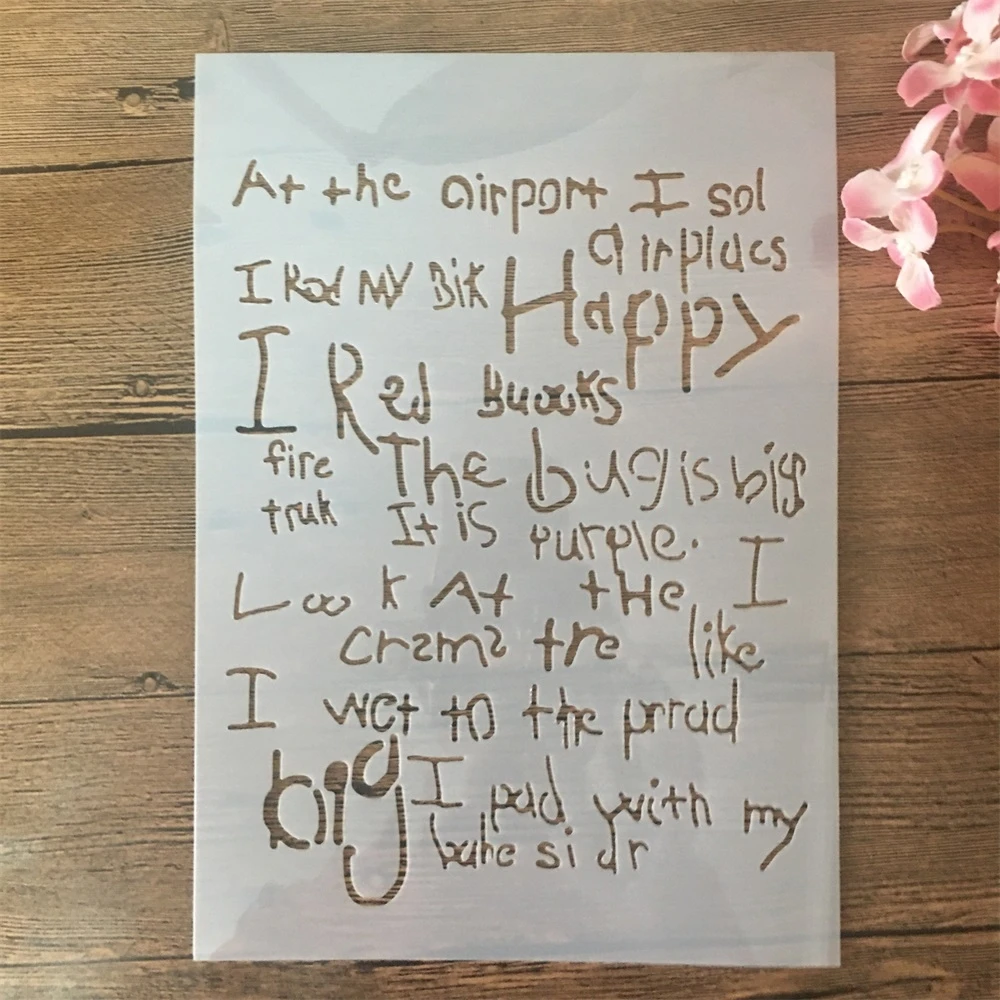 At the airport I sol
airplacs
I Rod MY Bik Happy
I Red Buooks
fire The bug is big
truk It is purple. I
Look At tHe
crsms tre like
I wet to the prrad
big I pad with my
bahe si dr